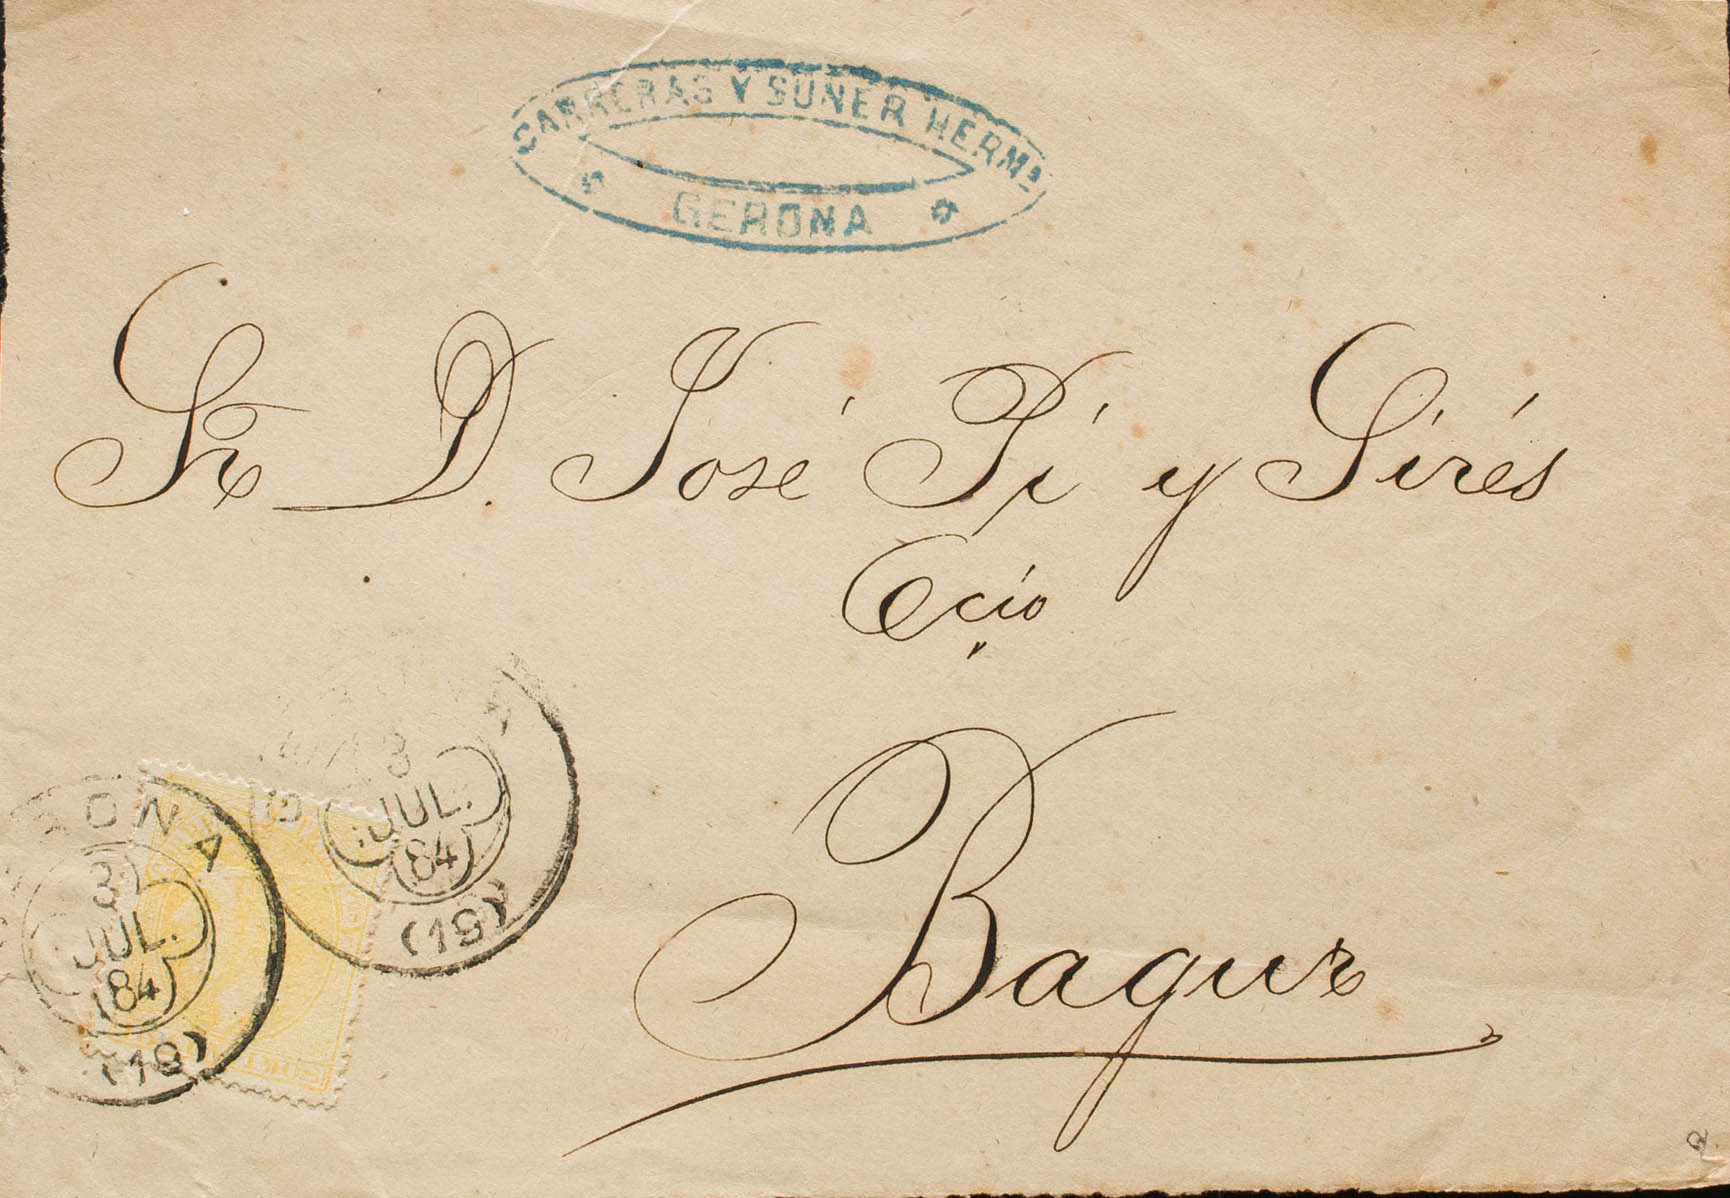 CARRERAS Y SUÑER HERMS
GERONA
Sr. D. José Pi y Sirés
Ccio
Bagur
3
JUL.
84
(19)
GERONA
3
JUL.
84
(19)